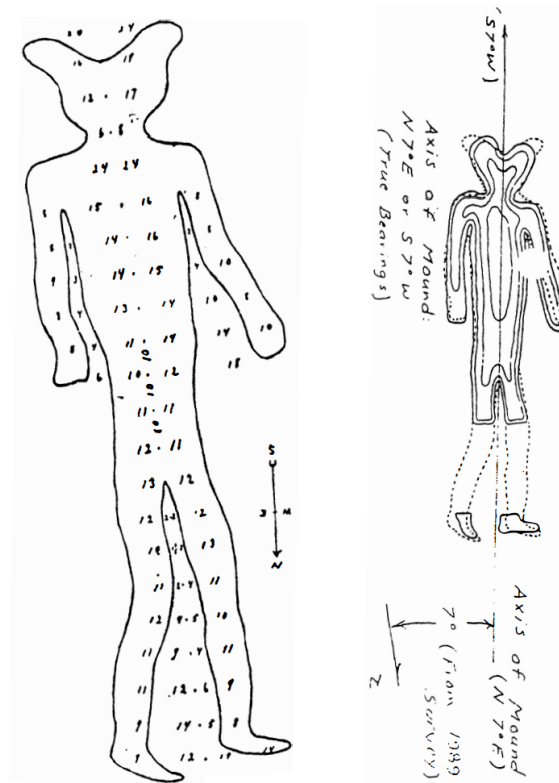 20 24
16 19
12 17
6 . 8
24 24
15 . 16 8
14 . 16
14 . 15 4 10
13 . 14 10
11 . 14 14 10
01
6 10 . 12 18
10
11 . 11
03
12 . 11
13 12
12
13
11 11
12 10
11 11
11 12 . 6 9
9 14 . 5 8
9 12 . 19 14
S
N
S7°W)
Axis of Mound:
N7°E or S7°W
(True Bearings)
Axis of Mound
(N7°E)
7° (From 1989
Survey)
N